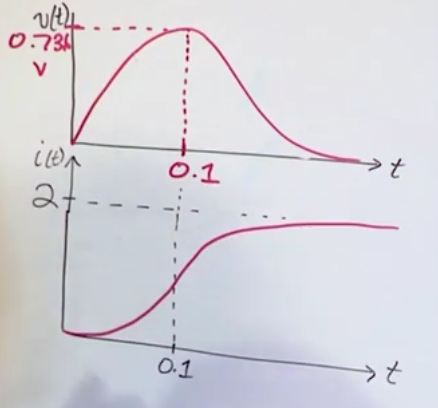 v(t)
0.736
v
0.1
t
i(t)
2
0.1
t